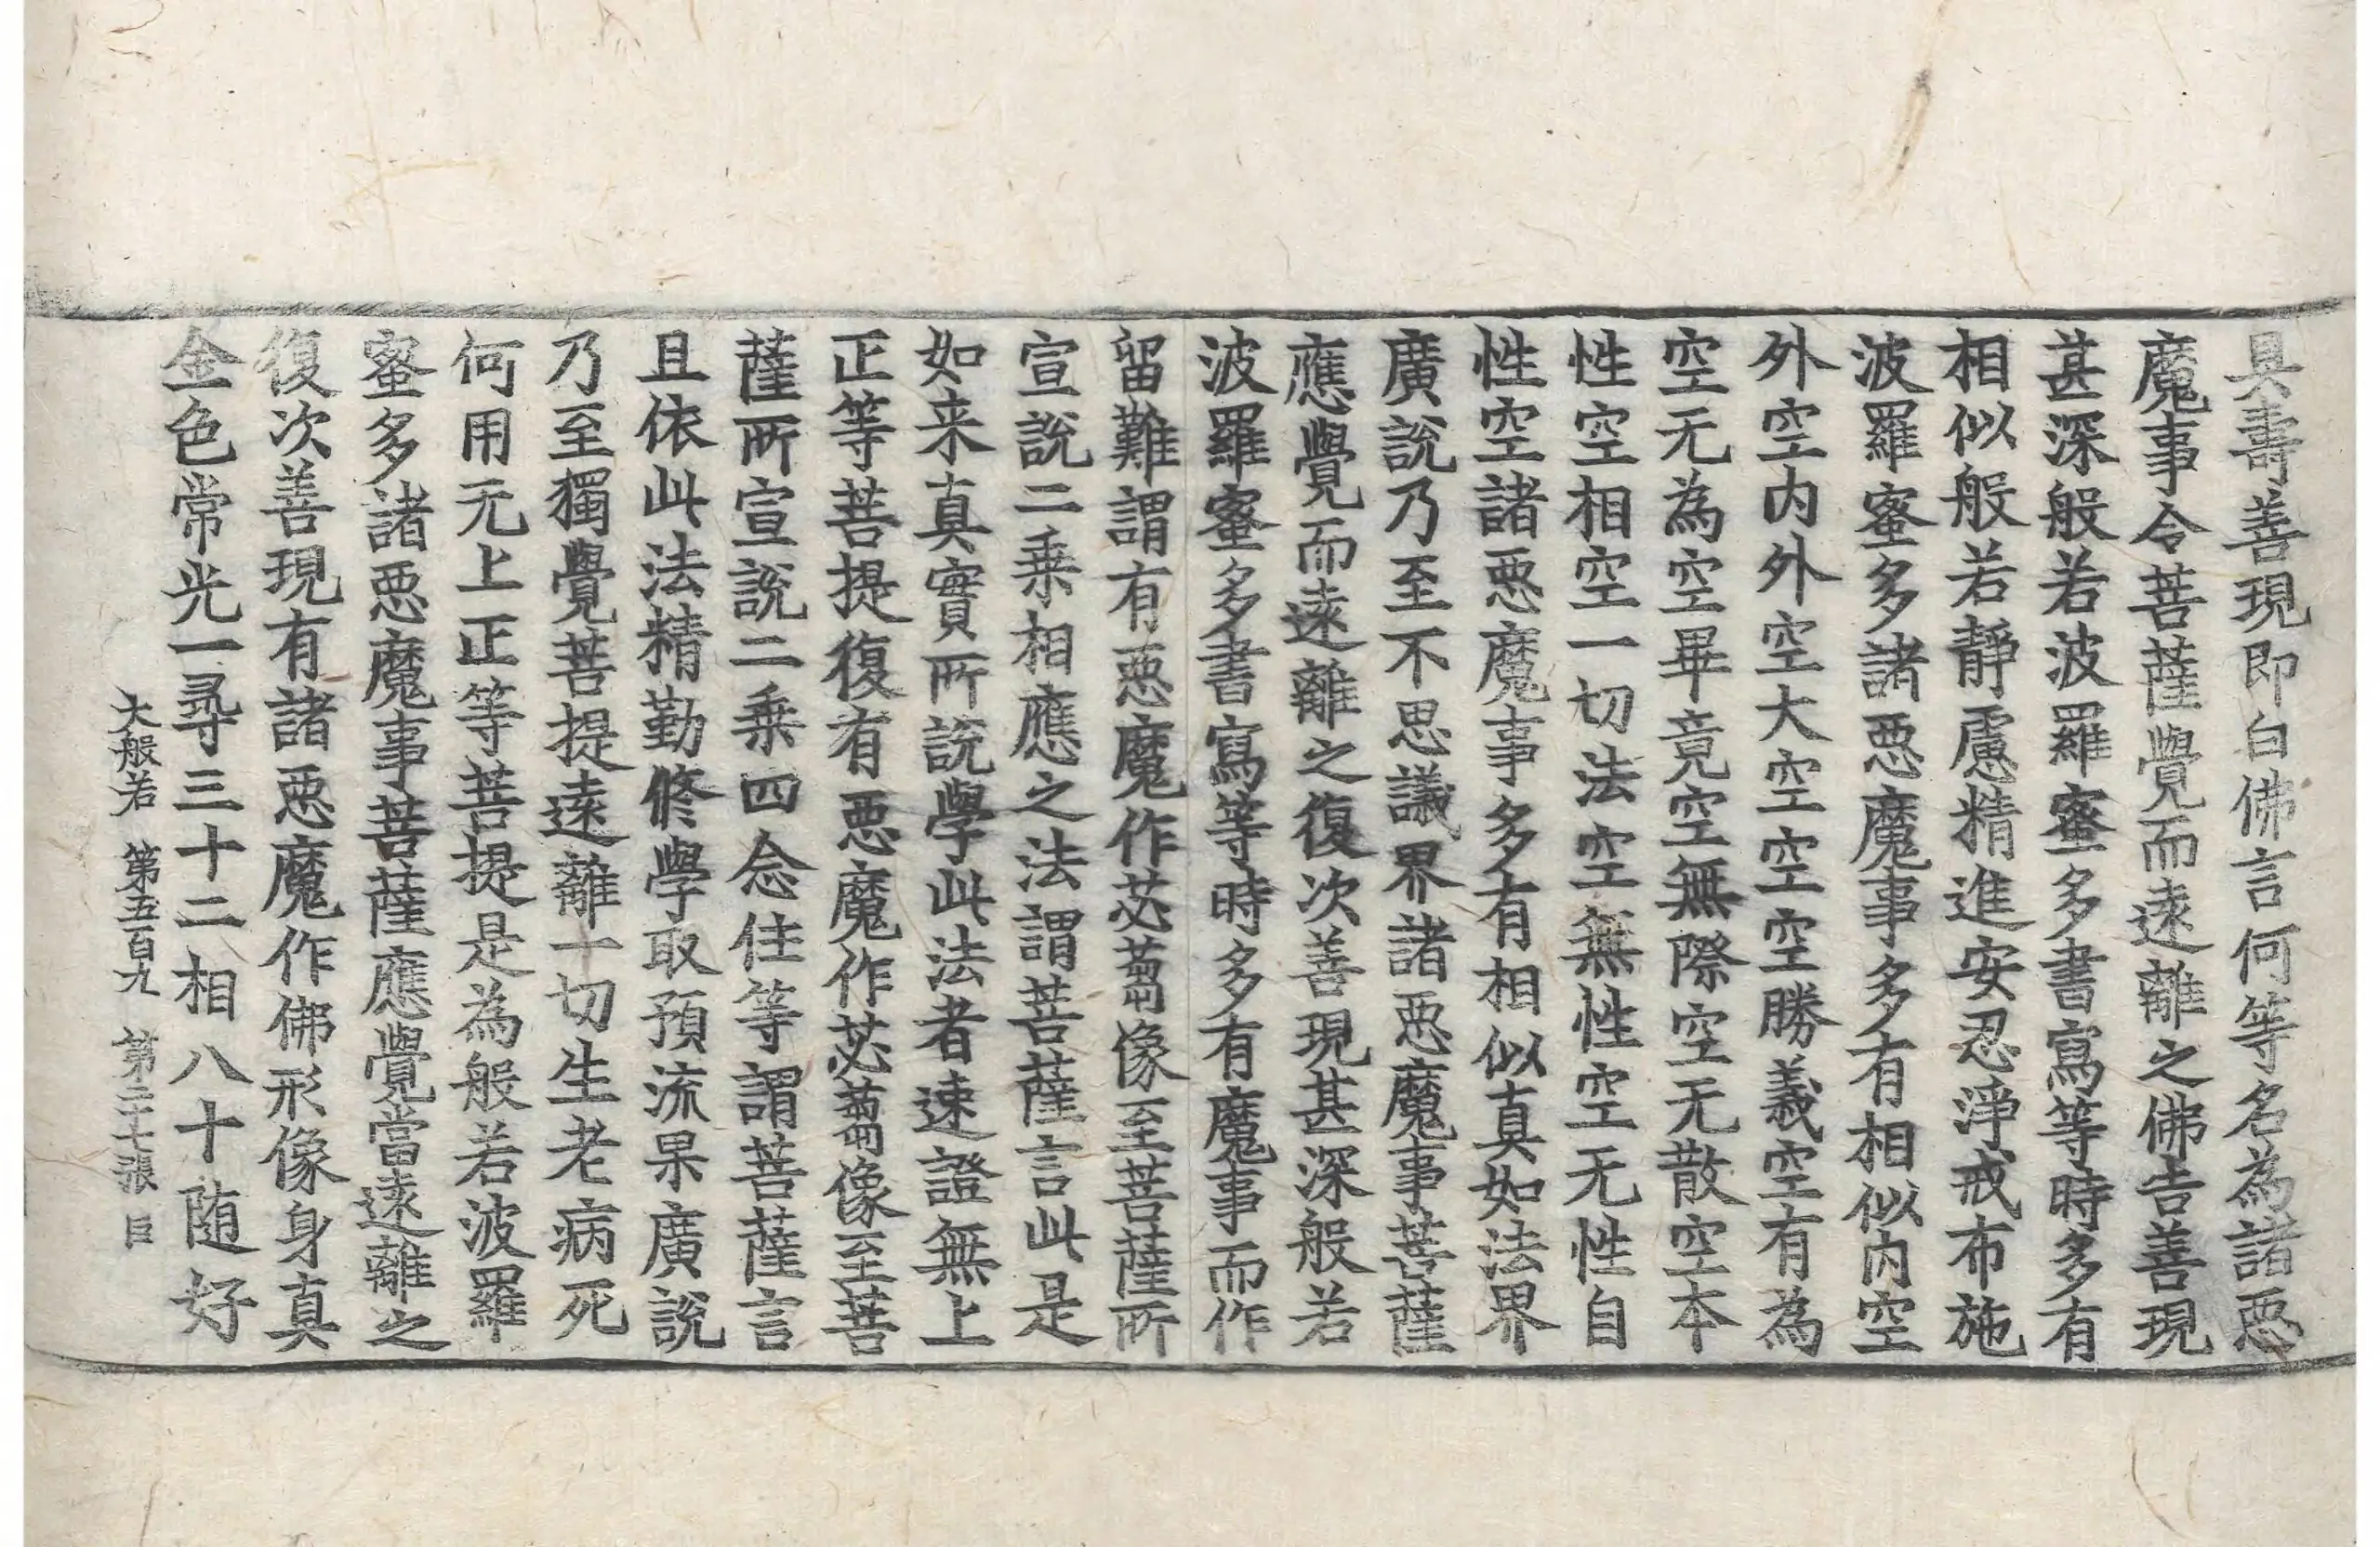 具壽善現即白佛言何等名為諸惡
魔事令菩薩覺而遠離之佛告善現
甚深般若波羅蜜多書寫等時多有
相似般若靜慮精進安忍淨戒布施
波羅蜜多諸惡魔事多有相似內空
外空內外空大空空空勝義空有為
空无為空畢竟空無際空无散空本
性空相空一切法空無性空无性自
性空諸惡魔事多有相似真如法界
廣說乃至不思議界諸惡魔事菩薩
應覺而遠離之復次善現甚深般若
波羅蜜多書寫等時多有魔事而作
留難謂有惡魔作苾蒭像至菩薩所
宣說二乘相應之法謂菩薩言此是
如来真實所說學此法者速證無上
正等菩提復有惡魔作苾蒭像至菩
薩所宣說二乘四念住等謂菩薩言
且依此法精勤修學取預流果廣說
乃至獨覺菩提遠離一切生老病死
何用无上正等菩提是為般若波羅
蜜多諸惡魔事菩薩應覺當遠離之
復次善現有諸惡魔作佛形像身真
金色常光一尋三十二相八十随好
大般若 第五百九 第二十七張 巨